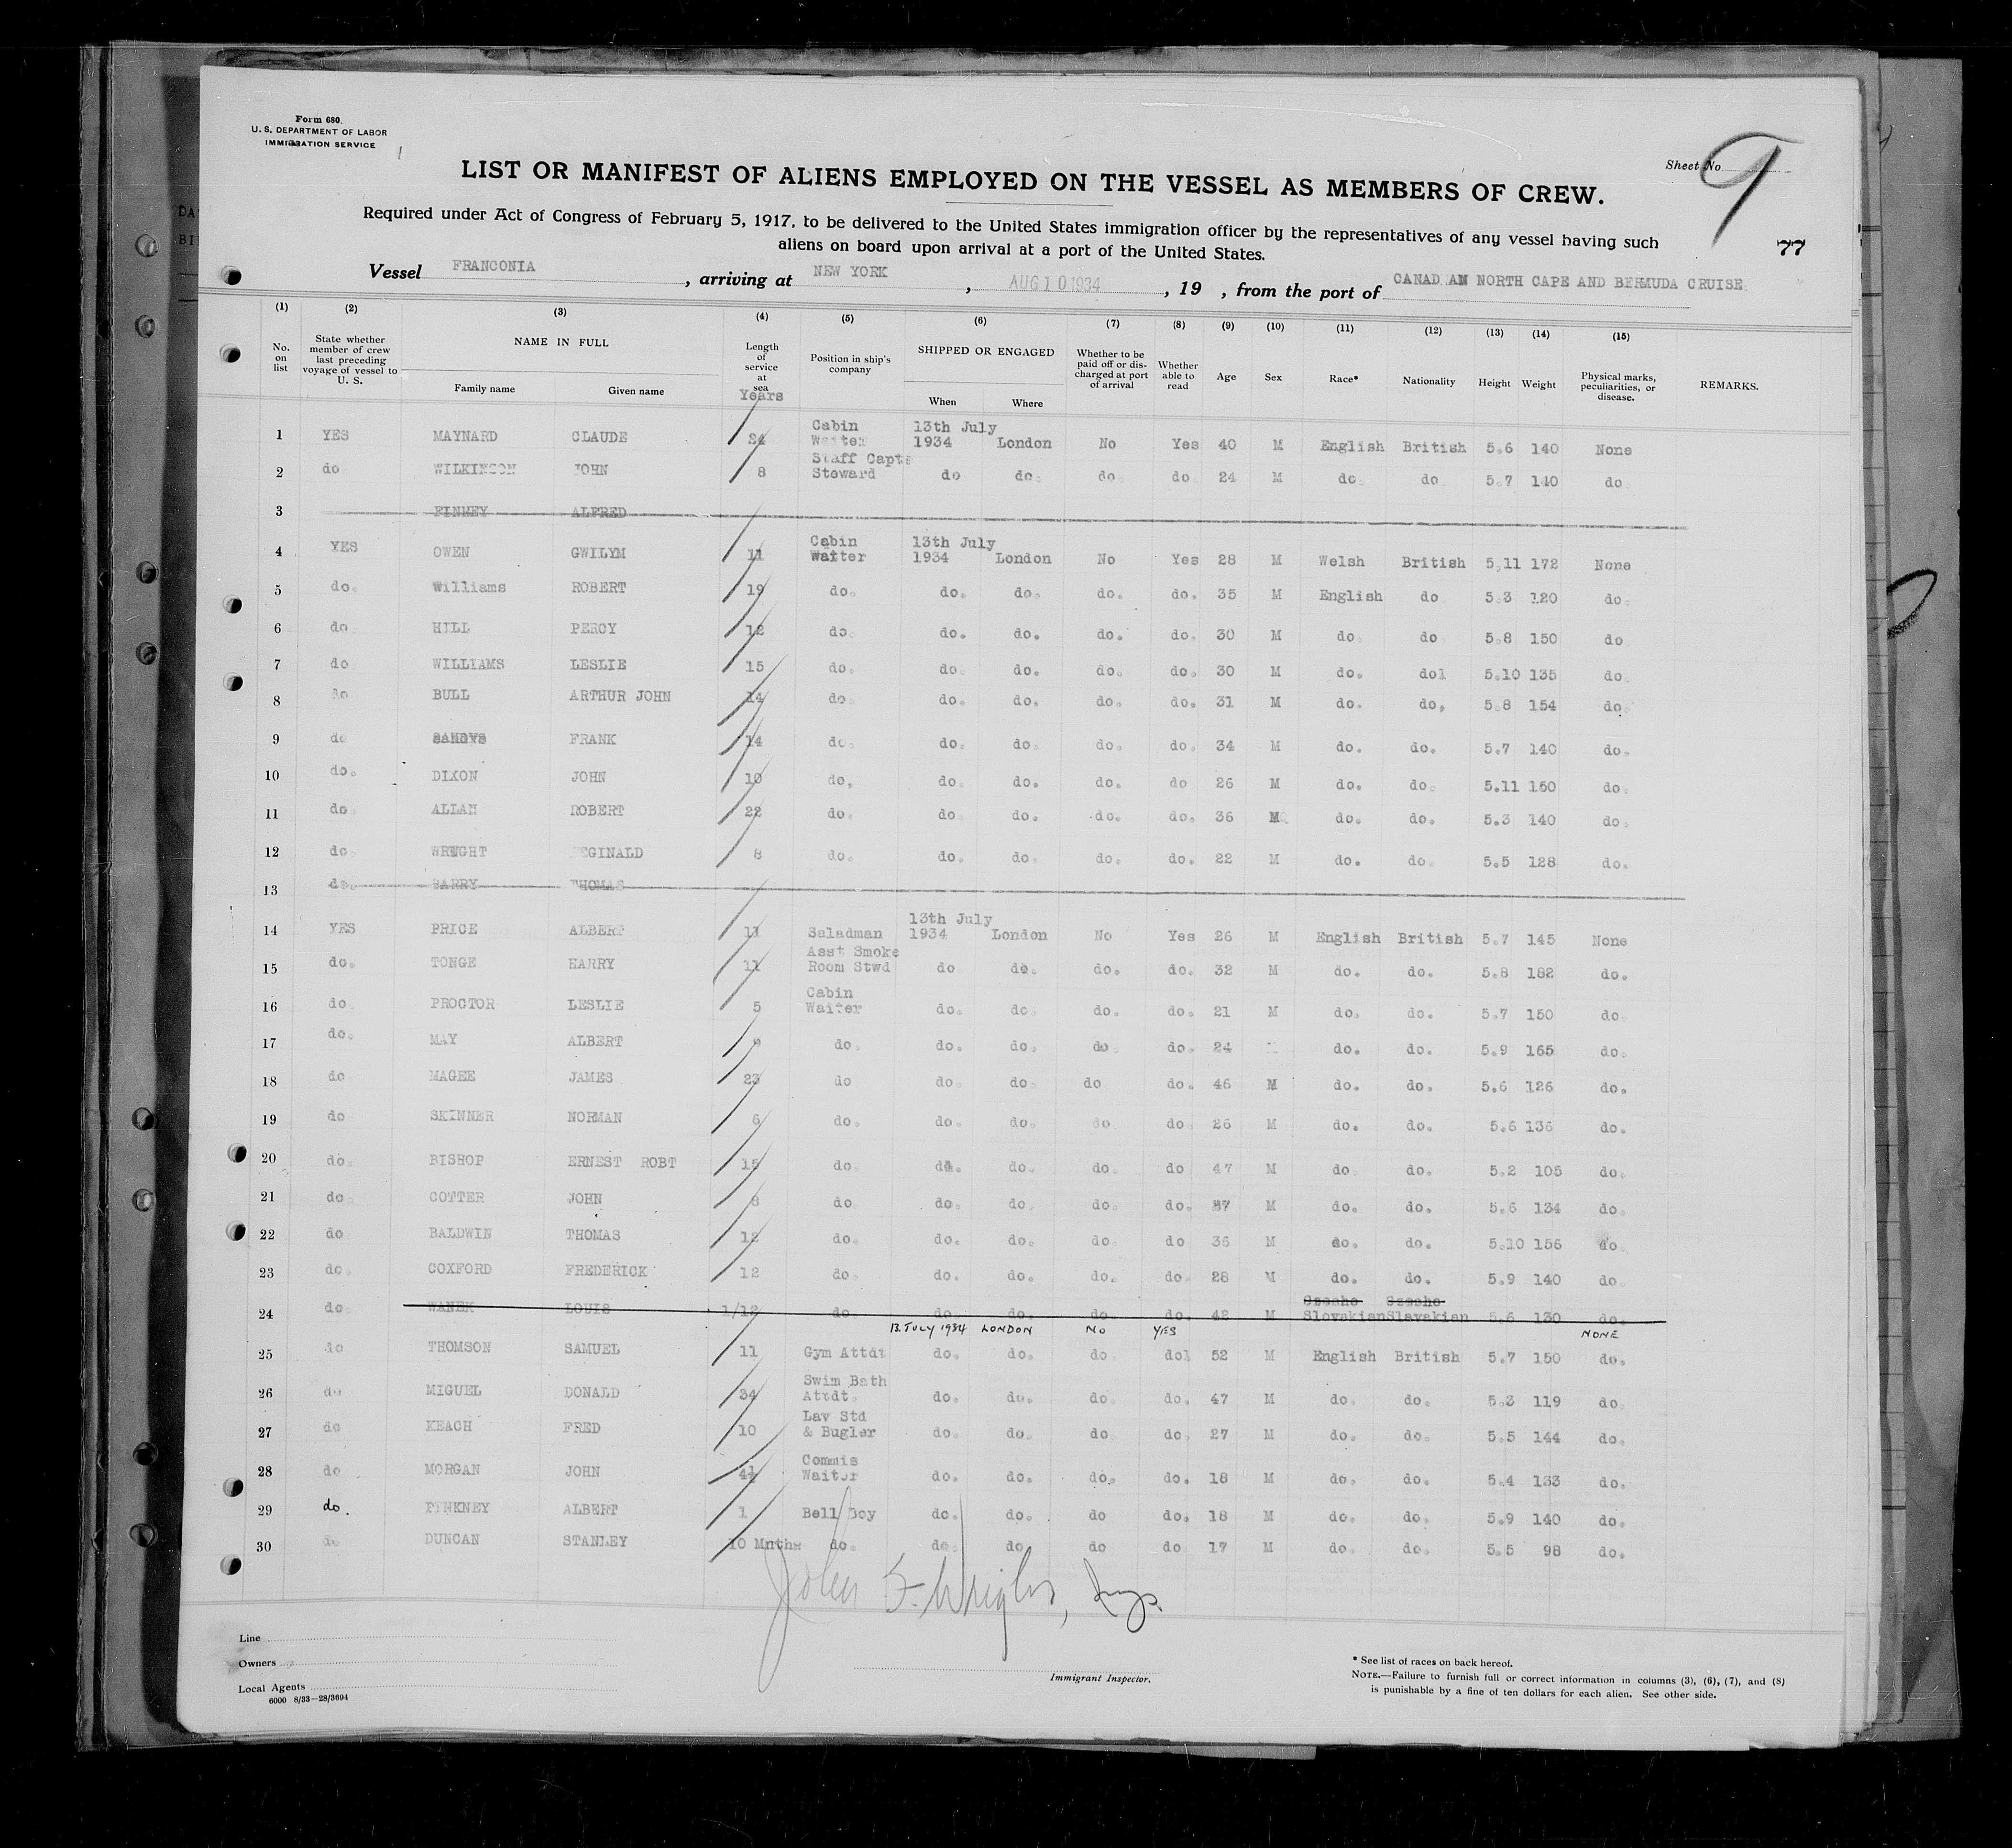 Form 680.
U. S. DEPARTMENT OF LABOR
IMMIGRATION SERVICE
Sheet No. 9
LIST OR MANIFEST OF ALIENS EMPLOYED ON THE VESSEL AS MEMBERS OF CREW.
Required under Act of Congress of February 5, 1917, to be delivered to the United States immigration officer by the representatives of any vessel having such
aliens on board upon arrival at a port of the United States.
77
Vessel FRANCONIA, arriving at NEW YORK, AUG 10 1934, 19 , from the port of CANADIAN NORTH CAPE AND BERMUDA CRUISE
(1) (2) (3) (4) (5) (6) (7) (8) (9) (10) (11) (12) (13) (14) (15)
No. on list State whether member of crew last preceding voyage of vessel to U. S. NAME IN FULL Family name Given name Length of service at sea Years Position in ship's company SHIPPED OR ENGAGED When Where Whether to be paid off or discharged at port of arrival Whether able to read Age Sex Race* Nationality Height Weight Physical marks, peculiarities, or disease. REMARKS.
1 YES MAYNARD CLAUDE 24 Cabin Waiter 13th July 1934 London No Yes 40 M English British 5.6 140 None
2 do WILKINSON JOHN 8 Staff Capts Steward do do. do do 24 M do do 5.7 140 do
3 FINNEY ALFRED
4 YES OWEN GWILYM 11 Cabin Waiter 13th July 1934 London No Yes 28 M Welsh British 5.11 172 None
5 do. Williams ROBERT 19 do. do. do. do. do. 35 M English do 5.3 120 do.
6 do HILL PERCY 12 do. do. do. do. do. 30 M do do 5.8 150 do
7 do WILLIAMS LESLIE 15 do. do. do. do. do. 30 M do. do1 5.10 135 do
8 do BULL ARTHUR JOHN 14 do. do. do. do. do. 31 M do. do, 5.8 154 do.
9 do FRANK 14 do. do. do. do. do. 34 M do. do. 5.7 140 do.
10 do. DIXON JOHN 10 do, do. do. do. do 26 M do. do. 5.11 150 do.
11 do ALLAN ROBERT 22 do. do do. do. do. 36 M do. do. 5.3 140 do.
12 do WRIGHT REGINALD 8 do. do. do. do. do. 22 M do. do 5.5 128 do.
13 do. BARRY THOMAS
14 YES PRICE ALBERT 11 Saladman 13th July 1934 London No Yes 26 M English British 5.7 145 None
15 do. TONGE HARRY 11 Asst Smoke Room Stwd do do. do. do. 32 M do. do. 5.8 182 do.
16 do PROCTOR LESLIE 5 Cabin Waiter do. do. do. do. 21 M do. do. 5.7 150 do
17 do. MAY ALBERT 9 do. do. do. do do. 24 do. do. 5.9 165 do.
18 do MAGEE JAMES 23 do do do. do do. 46 M do. do. 5.6 126 do.
19 do SKINNER NORMAN 6 do. do. do. do do 26 M do. do. 5.6 136 do.
20 do BISHOP ERNEST ROBT 15 do. do. do. do. do 47 M do do. 5.2 105 do.
21 do COTTER JOHN 8 do do. do. do. do. 37 M do. do. 5.6 134 do.
22 do BALDWIN THOMAS 12 do. do. do. do. do 36 M do. do. 5.10 156 do
23 do. COXFORD FREDERICK 12 do. do. do. do. do 28 M do. do. 5.9 140 do.
24 do WANEK LOUIS 1/12 do. do. do. do do. 42 M Czecho Slovakian Szecho Slavakian 5.6 130 do.
13. JULY 1934 LONDON NO YES NONE
25 do THOMSON SAMUEL 11 Gym Attdt do. do. do do1 52 M English British 5.7 150 do.
26 do MIGUEL DONALD 34 Swim Bath Attdt. do. do. do. do. 47 M do. do. 5.3 119 do.
27 do KEACH FRED 10 Lav Std & Bugler do. do. do. do. 27 M do. do. 5.5 144 do.
28 do MORGAN JOHN 4½ Commis Waiter do. do. do. do. 18 M do. do. 5.4 133 do.
29 do. PINKNEY ALBERT 1 Bell Boy do. do. do do. 18 M do. do. 5.9 140 do.
30 do DUNCAN STANLEY 10 Mnths do. do. do do do 17 M do. do. 5.5 98 do.
John S. Wright, Insp.
Line
Owners
Local Agents
6000 8/33—28/3694
Immigrant Inspector.
* See list of races on back hereof.
NOTE.—Failure to furnish full or correct information in columns (3), (6), (7), and (8)
is punishable by a fine of ten dollars for each alien. See other side.